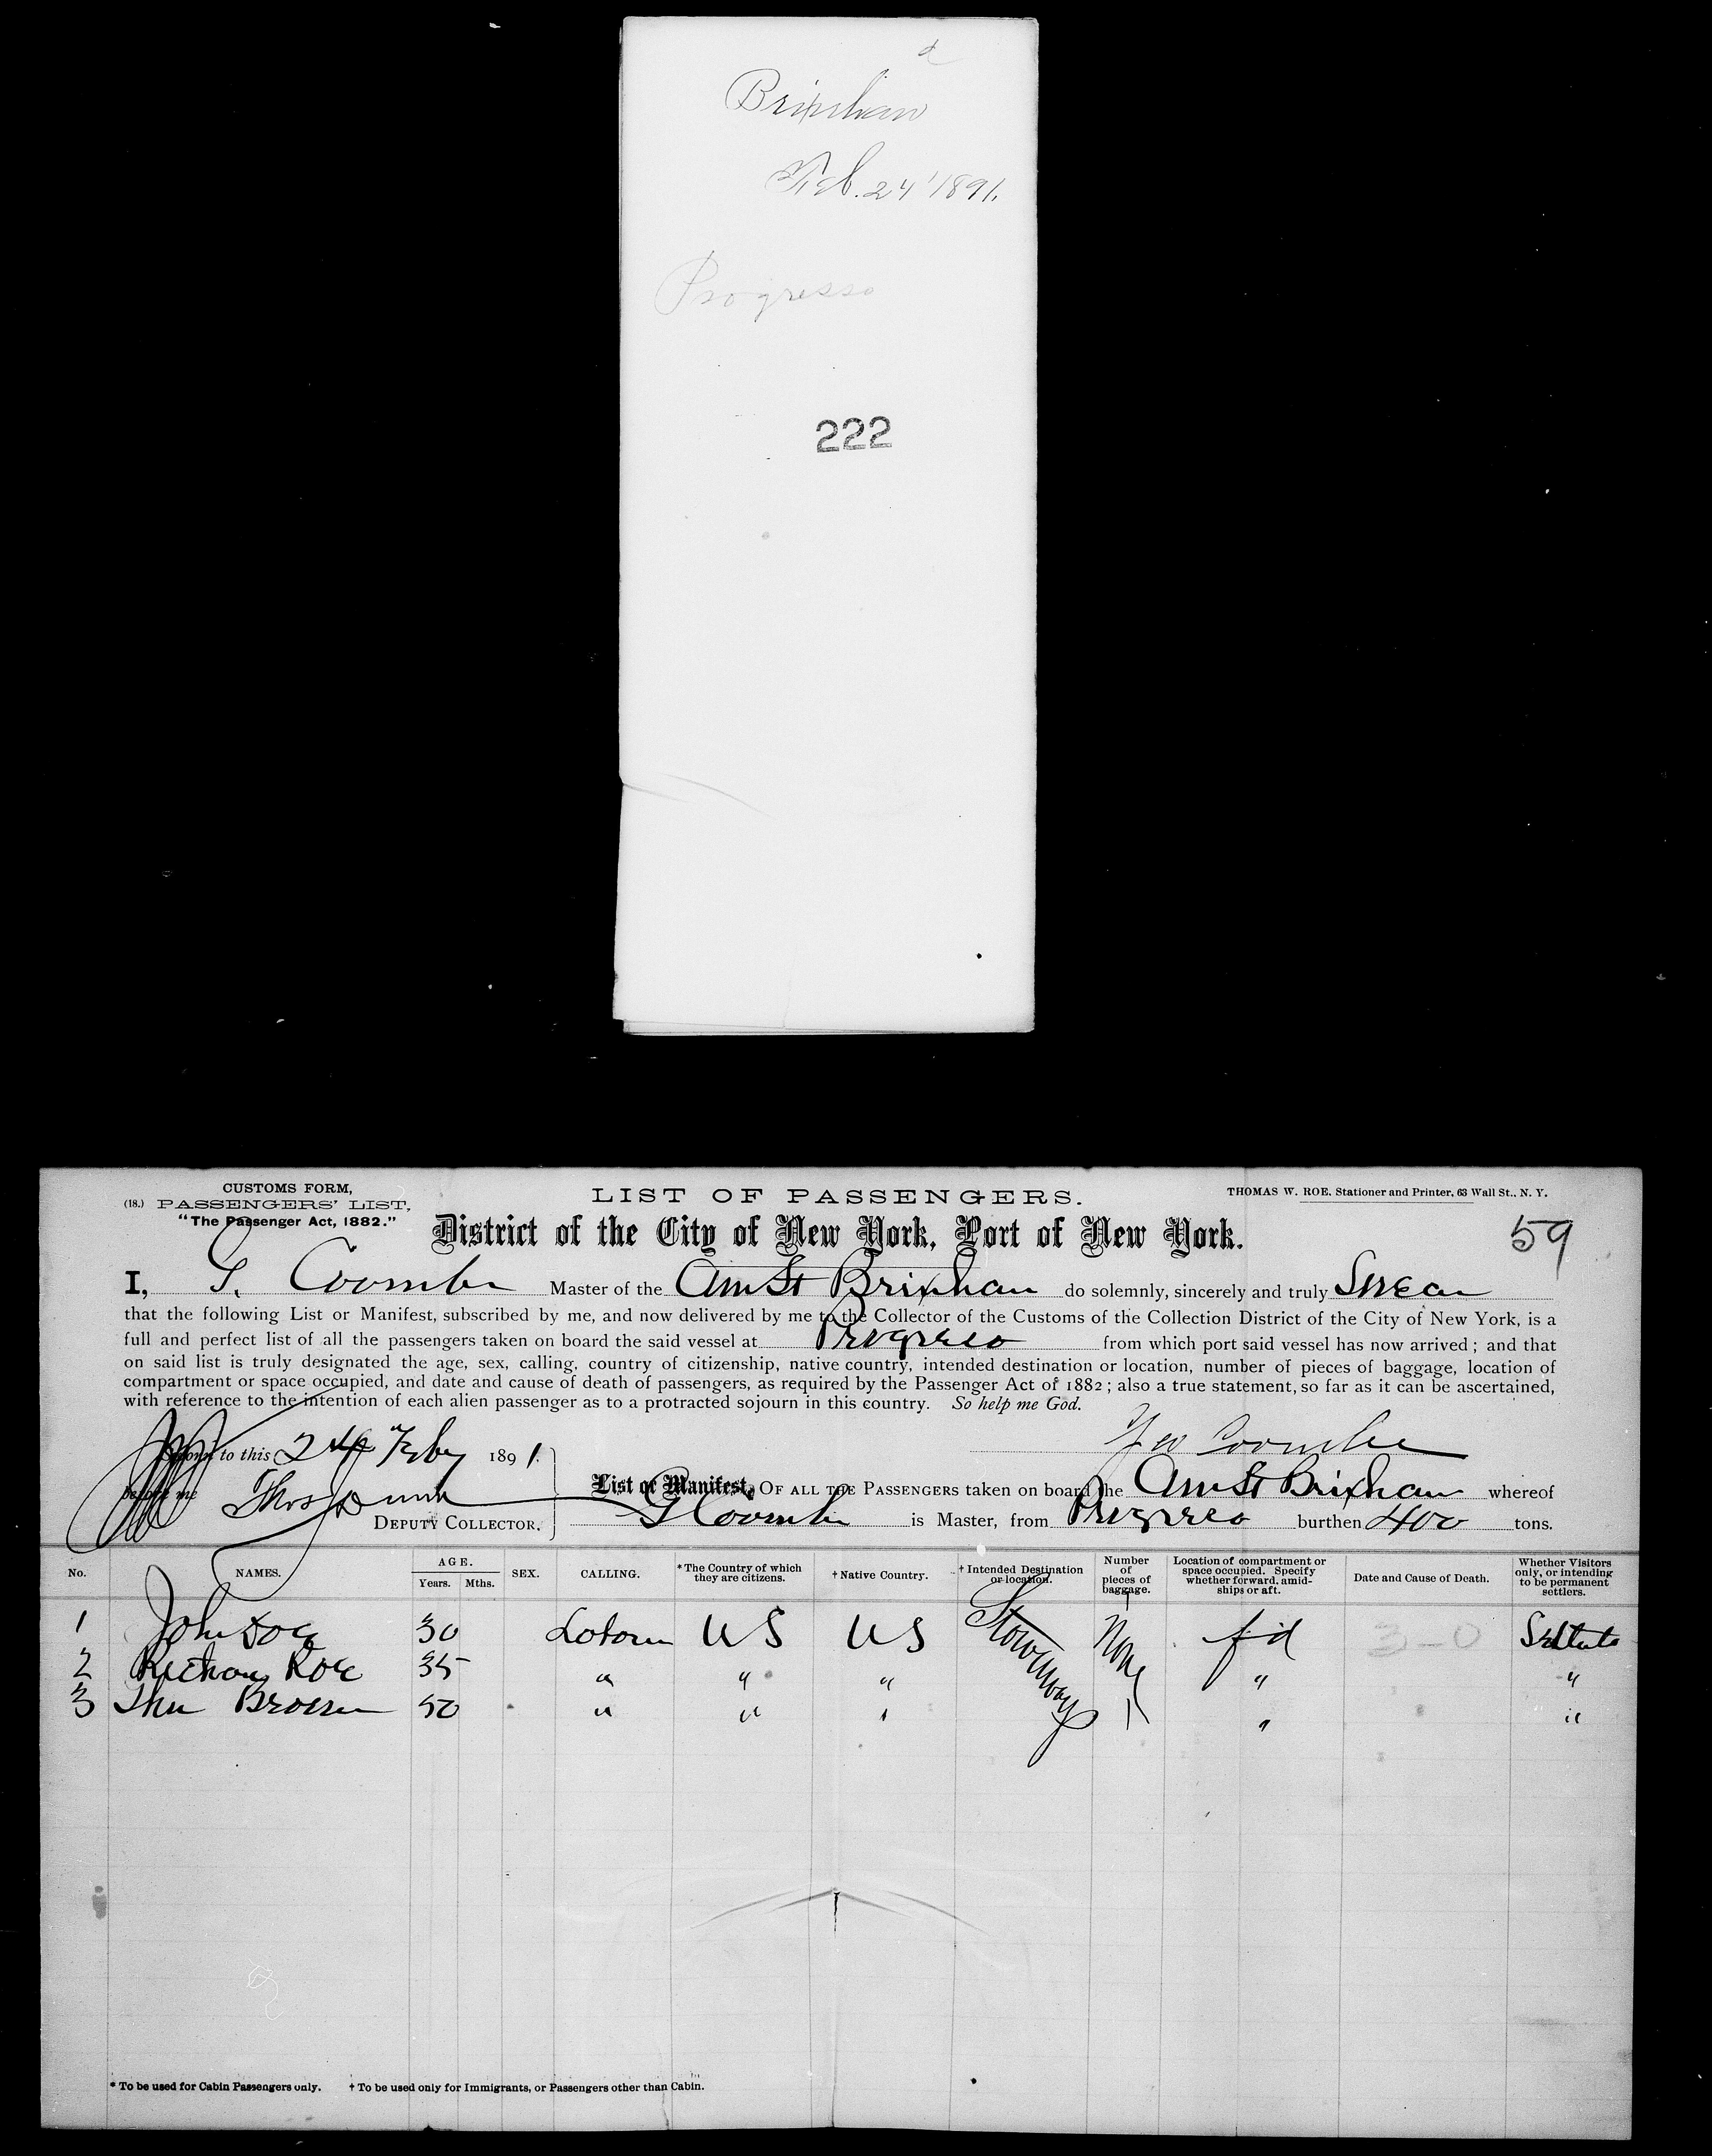 a
Brixham
Feb. 24 1891.
Progresso
222
CUSTOMS FORM,
(18.) PASSENGERS' LIST,
"The Passenger Act, 1882."
LIST OF PASSENGERS.
THOMAS W. ROE, Stationer and Printer, 63 Wall St., N. Y.
District of the City of New York, Port of New York.
59
I, G. Coombe Master of the Am St Brixham do solemnly, sincerely and truly Swear
that the following List or Manifest, subscribed by me, and now delivered by me to the Collector of the Customs of the Collection District of the City of New York, is a
full and perfect list of all the passengers taken on board the said vessel at Progreso from which port said vessel has now arrived; and that
on said list is truly designated the age, sex, calling, country of citizenship, native country, intended destination or location, number of pieces of baggage, location of
compartment or space occupied, and date and cause of death of passengers, as required by the Passenger Act of 1882; also a true statement, so far as it can be ascertained,
with reference to the intention of each alien passenger as to a protracted sojourn in this country. So help me God.
Coombe
Sworn to this 24 Feby 1891.
before me Thos
DEPUTY COLLECTOR.
List or Manifest, OF ALL THE PASSENGERS taken on board the Am St Brixham whereof
G Coombe is Master, from Progreso burthen 400 tons.
No. NAMES. AGE. Years. Mths. SEX. CALLING. *The Country of which they are citizens. †Native Country. †Intended Destination or location. Number of pieces of baggage. Location of compartment or space occupied. Specify whether forward, amidships or aft. Date and Cause of Death. Whether Visitors only, or intending to be permanent settlers.
1 John Doe 30 Laborer US US Stowaways None f'd 3-0
2 Richard Roe 35 " " " " "
3 Brown 50 " " " " "
* To be used for Cabin Passengers only. † To be used only for Immigrants, or Passengers other than Cabin.